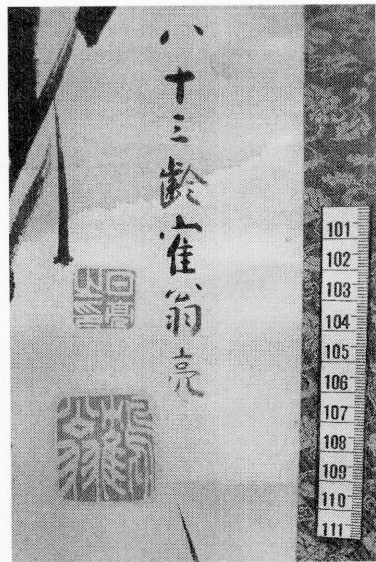 八十三齢隺翁亮
101
102
103
104
105
106
107
108
109
110
111